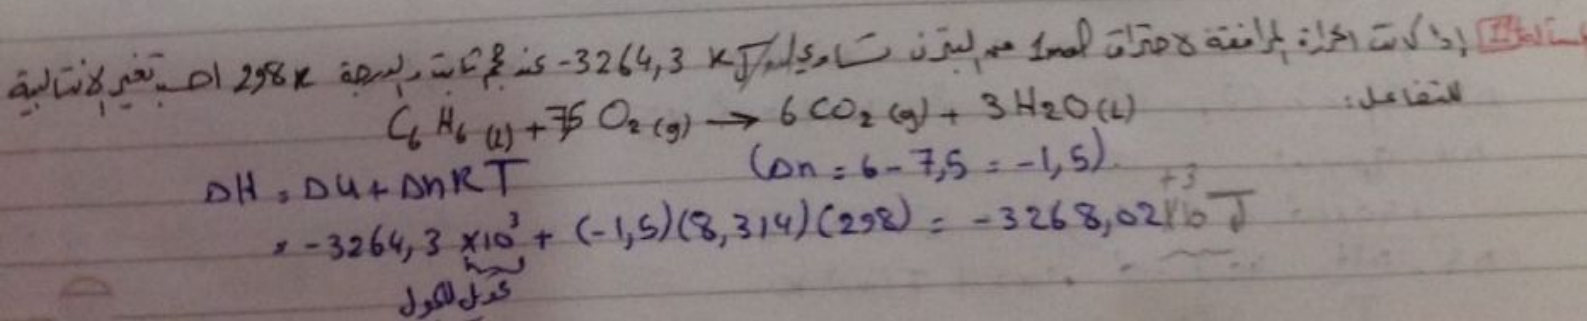 مسألة: إذا كانت الحرارة المرافقة لاحتراق 1mol من البنزن تساوي -3264,3 KJ عند حجم ثابت ولدرجة 298K احسب تغير الأنتالبية
للتفاعل:
C6 H6 (l) + 7,5 O2 (g) → 6 CO2 (g) + 3 H2O (L)
ΔH = ΔU + ΔnRT (Δn = 6 - 7,5 = -1,5)
= -3264,3 x10^3 + (-1,5)(8,314)(298) = -3268,02 x10^+3 J